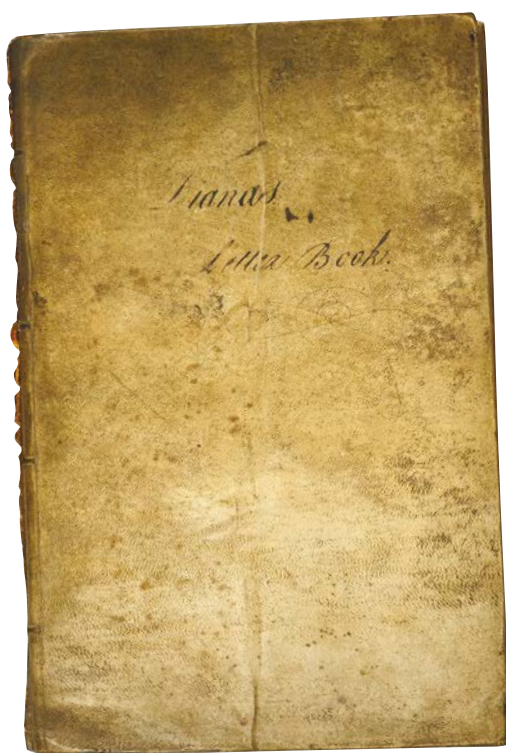 Diana's
Letter Book.